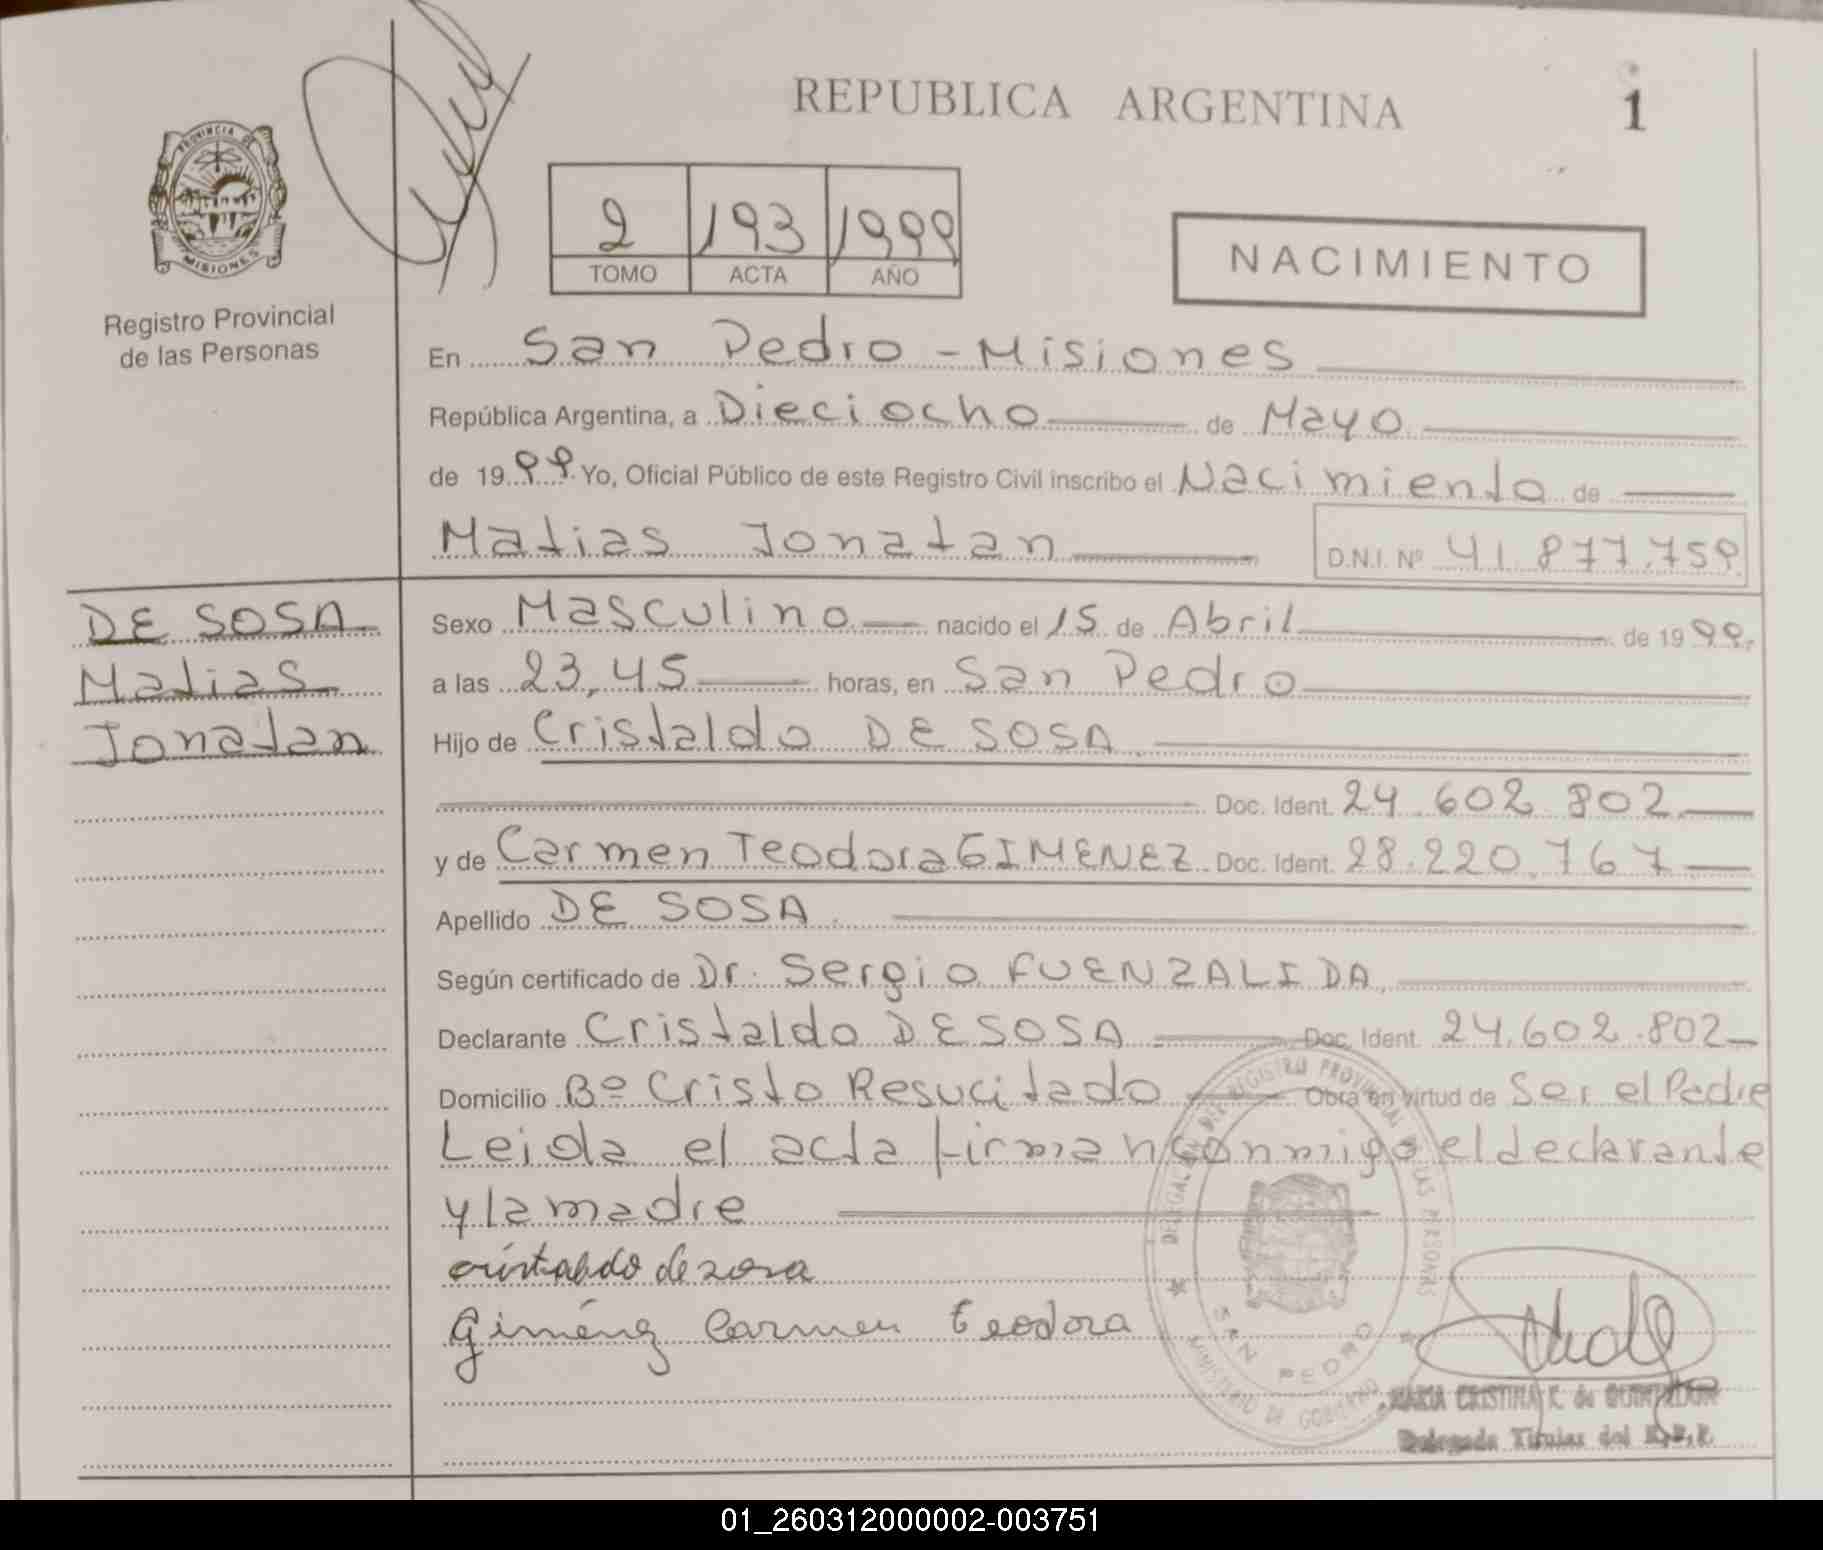 REPUBLICA ARGENTINA
1
PROVINCIA DE
MISIONES
Registro Provincial
de las Personas
2 193 1999
TOMO ACTA AÑO
NACIMIENTO
En San Pedro - Misiones
República Argentina, a Dieciocho de Mayo
de 1999 Yo, Oficial Público de este Registro Civil inscribo el Nacimiento de
Matias Jonatan D.N.I. Nº 41.877.759
DE SOSA
Matias
Jonatan
Sexo Masculino nacido el 15 de Abril de 1999.
a las 23,45 horas, en San Pedro
Hijo de Cristaldo DE SOSA
Doc. Ident. 24.602.802
y de Carmen Teodora GIMENEZ Doc. Ident. 28.220.767
Apellido DE SOSA
Según certificado de Dr. Sergio FUENZALIDA
Declarante Cristaldo DE SOSA Doc. Ident. 24.602.802
Domicilio Bº Cristo Resucitado Obra en virtud de Ser el Padre
Leida el acta firman conmigo el declarante
y la madre
cristaldo de zosa
Giménez Carmen Teodora
DELEGACION DEL REGISTRO PROVINCIAL DE LAS PERSONAS
SAN PEDRO
MINISTERIO DE GOBIERNO
MARIA CRISTINA K. de
Delegada Titular del R.P.P.
01_260312000002-003751